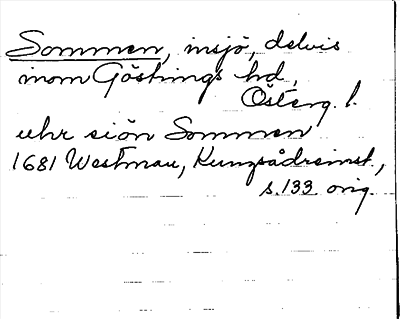 Sommen, insjö, delvis
inom Göstrings hd,
Österg. l.
uhr siön Sommen
1681 Westmau, Kungsådreinst.,
s. 133 orig.